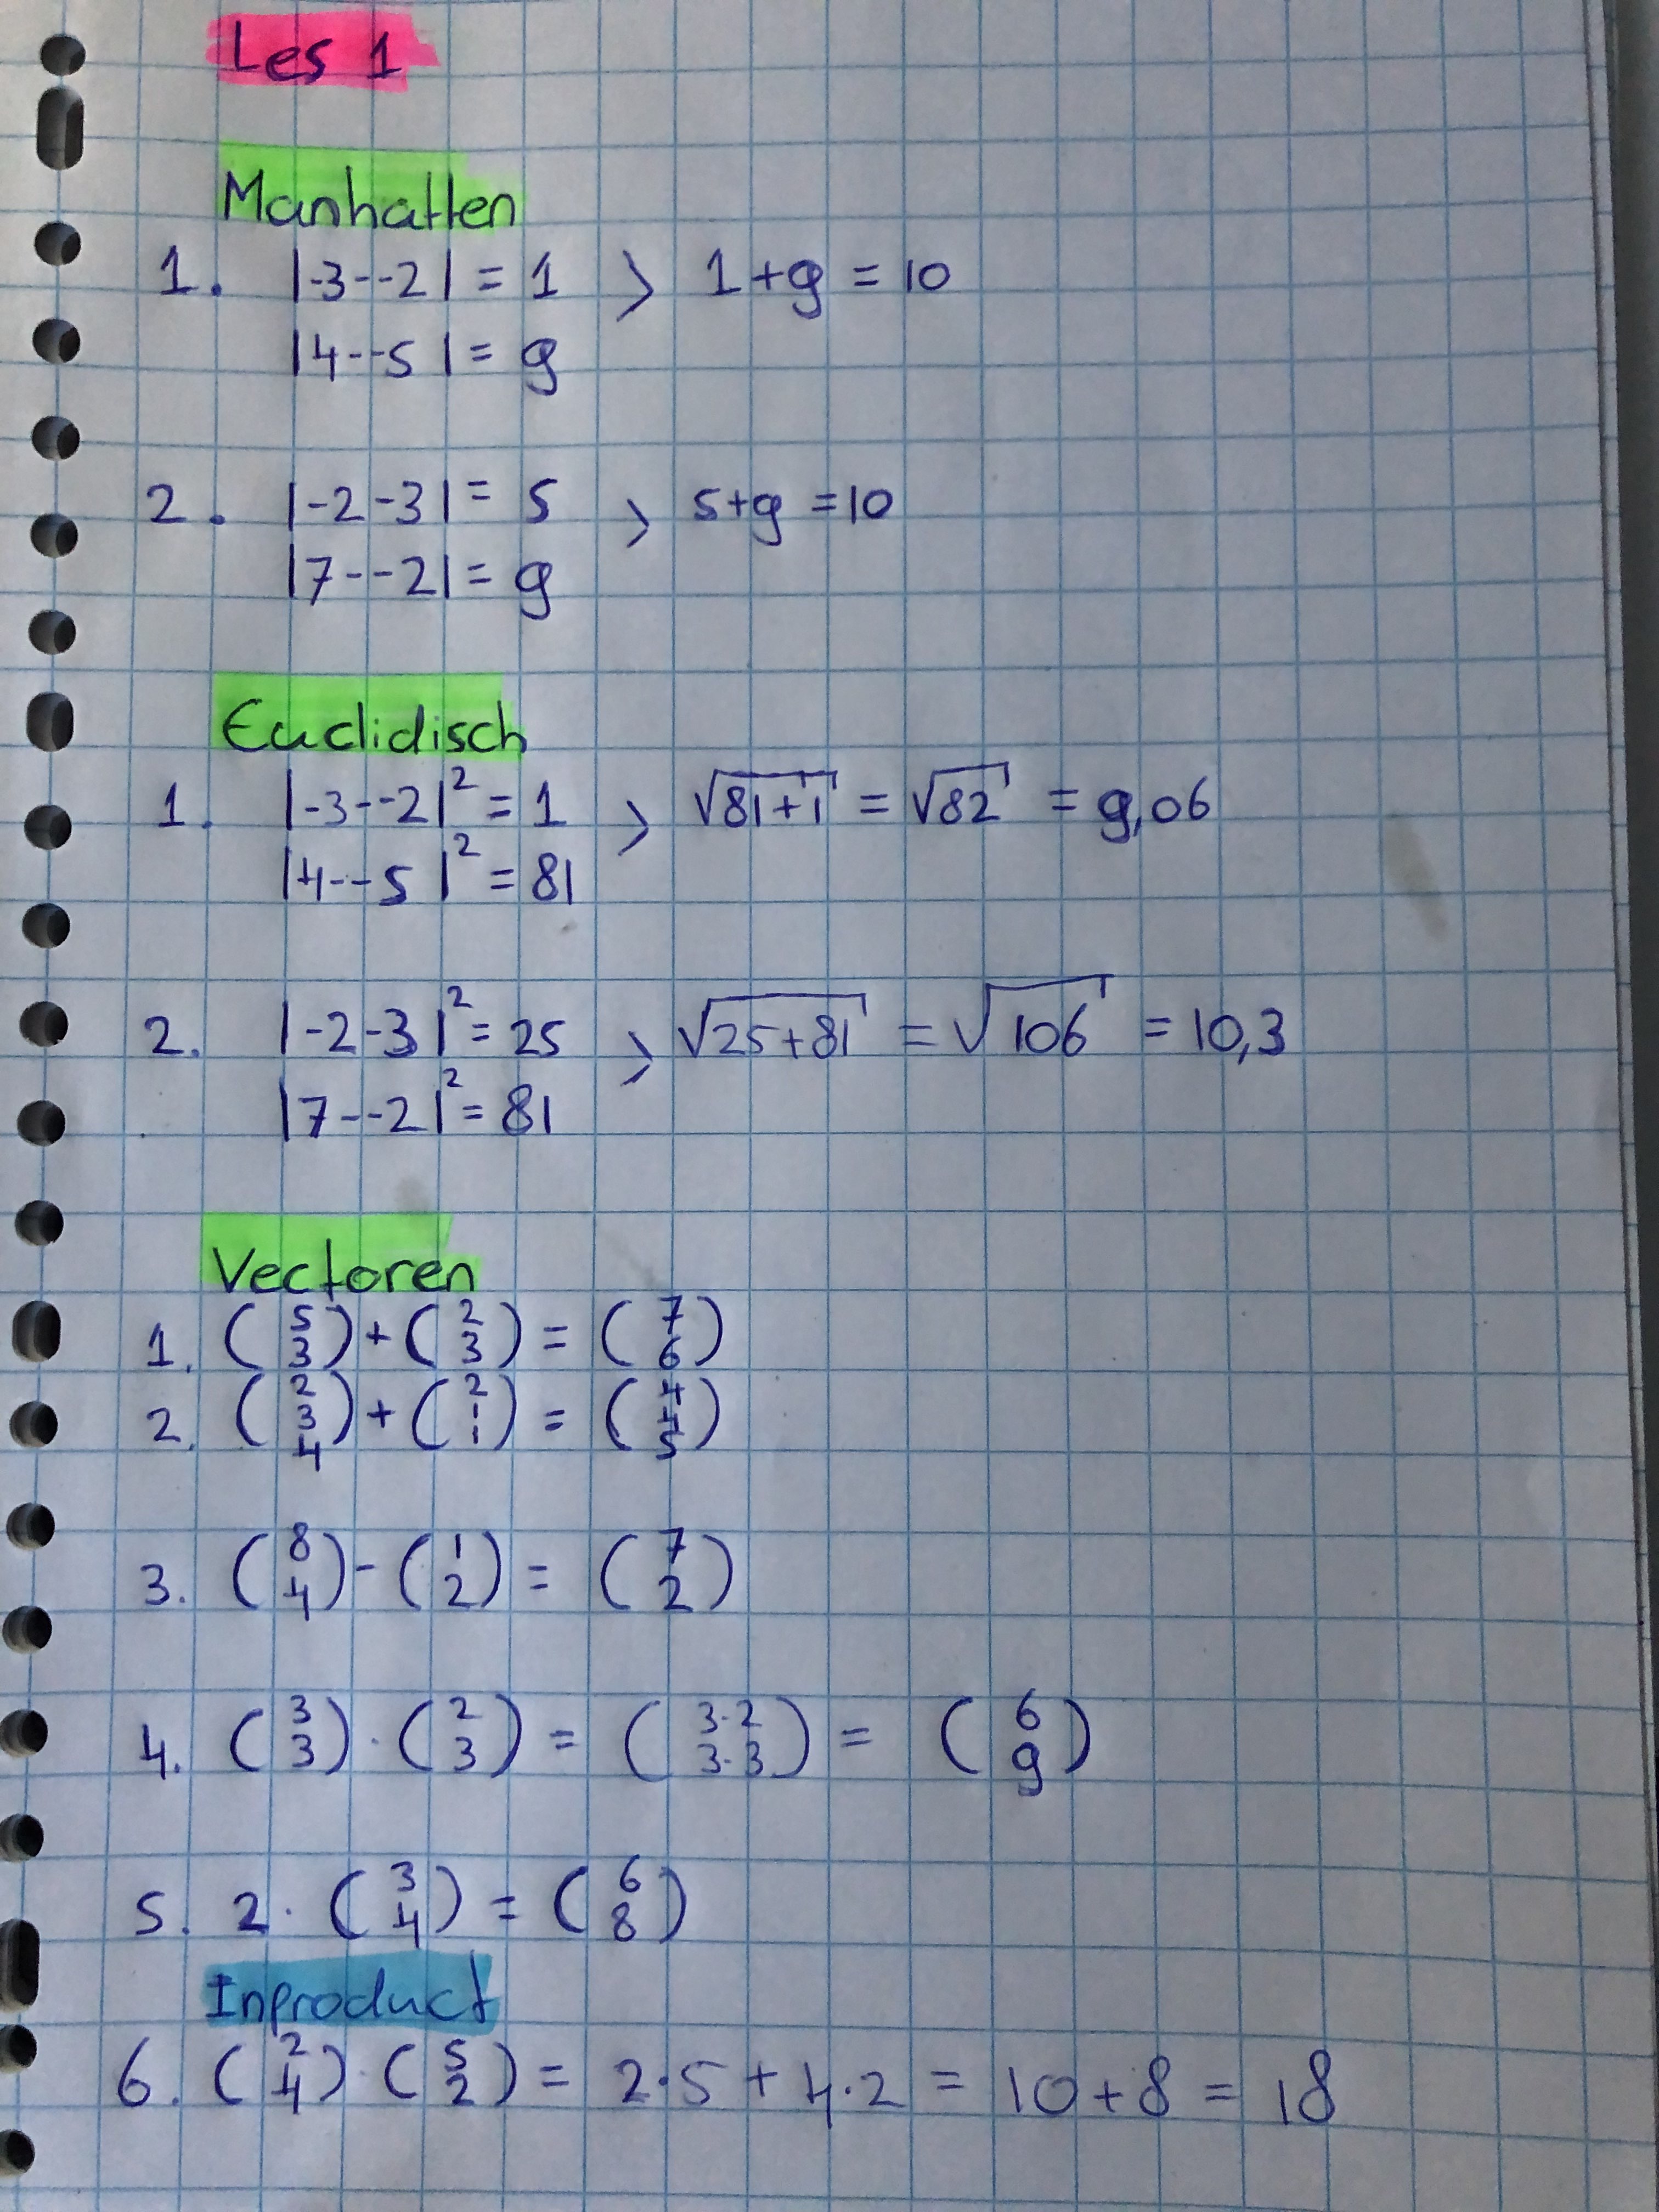 Les 1
Manhatten
1. |-3--2| = 1 > 1+9 = 10
|4--5| = 9
2. |-2-3| = 5 > 5+9 = 10
|7--2| = 9
Euclidisch
1. |-3--2|² = 1 > √81+1 = √82 = 9,06
|4--5|² = 81
2. |-2-3|² = 25 > √25+81 = √106 = 10,3
|7--2|² = 81
Vectoren
1. (5 3) + (2 3) = (7 6)
2. (2 3 4) + (2 1 1) = (4 4 5)
3. (8 4) - (1 2) = (7 2)
4. (3 3) · (2 3) = (3·2 3·3) = (6 9)
5. 2 · (3 4) = (6 8)
Inproduct
6. (2 4) · (5 2) = 2·5 + 4·2 = 10+8 = 18